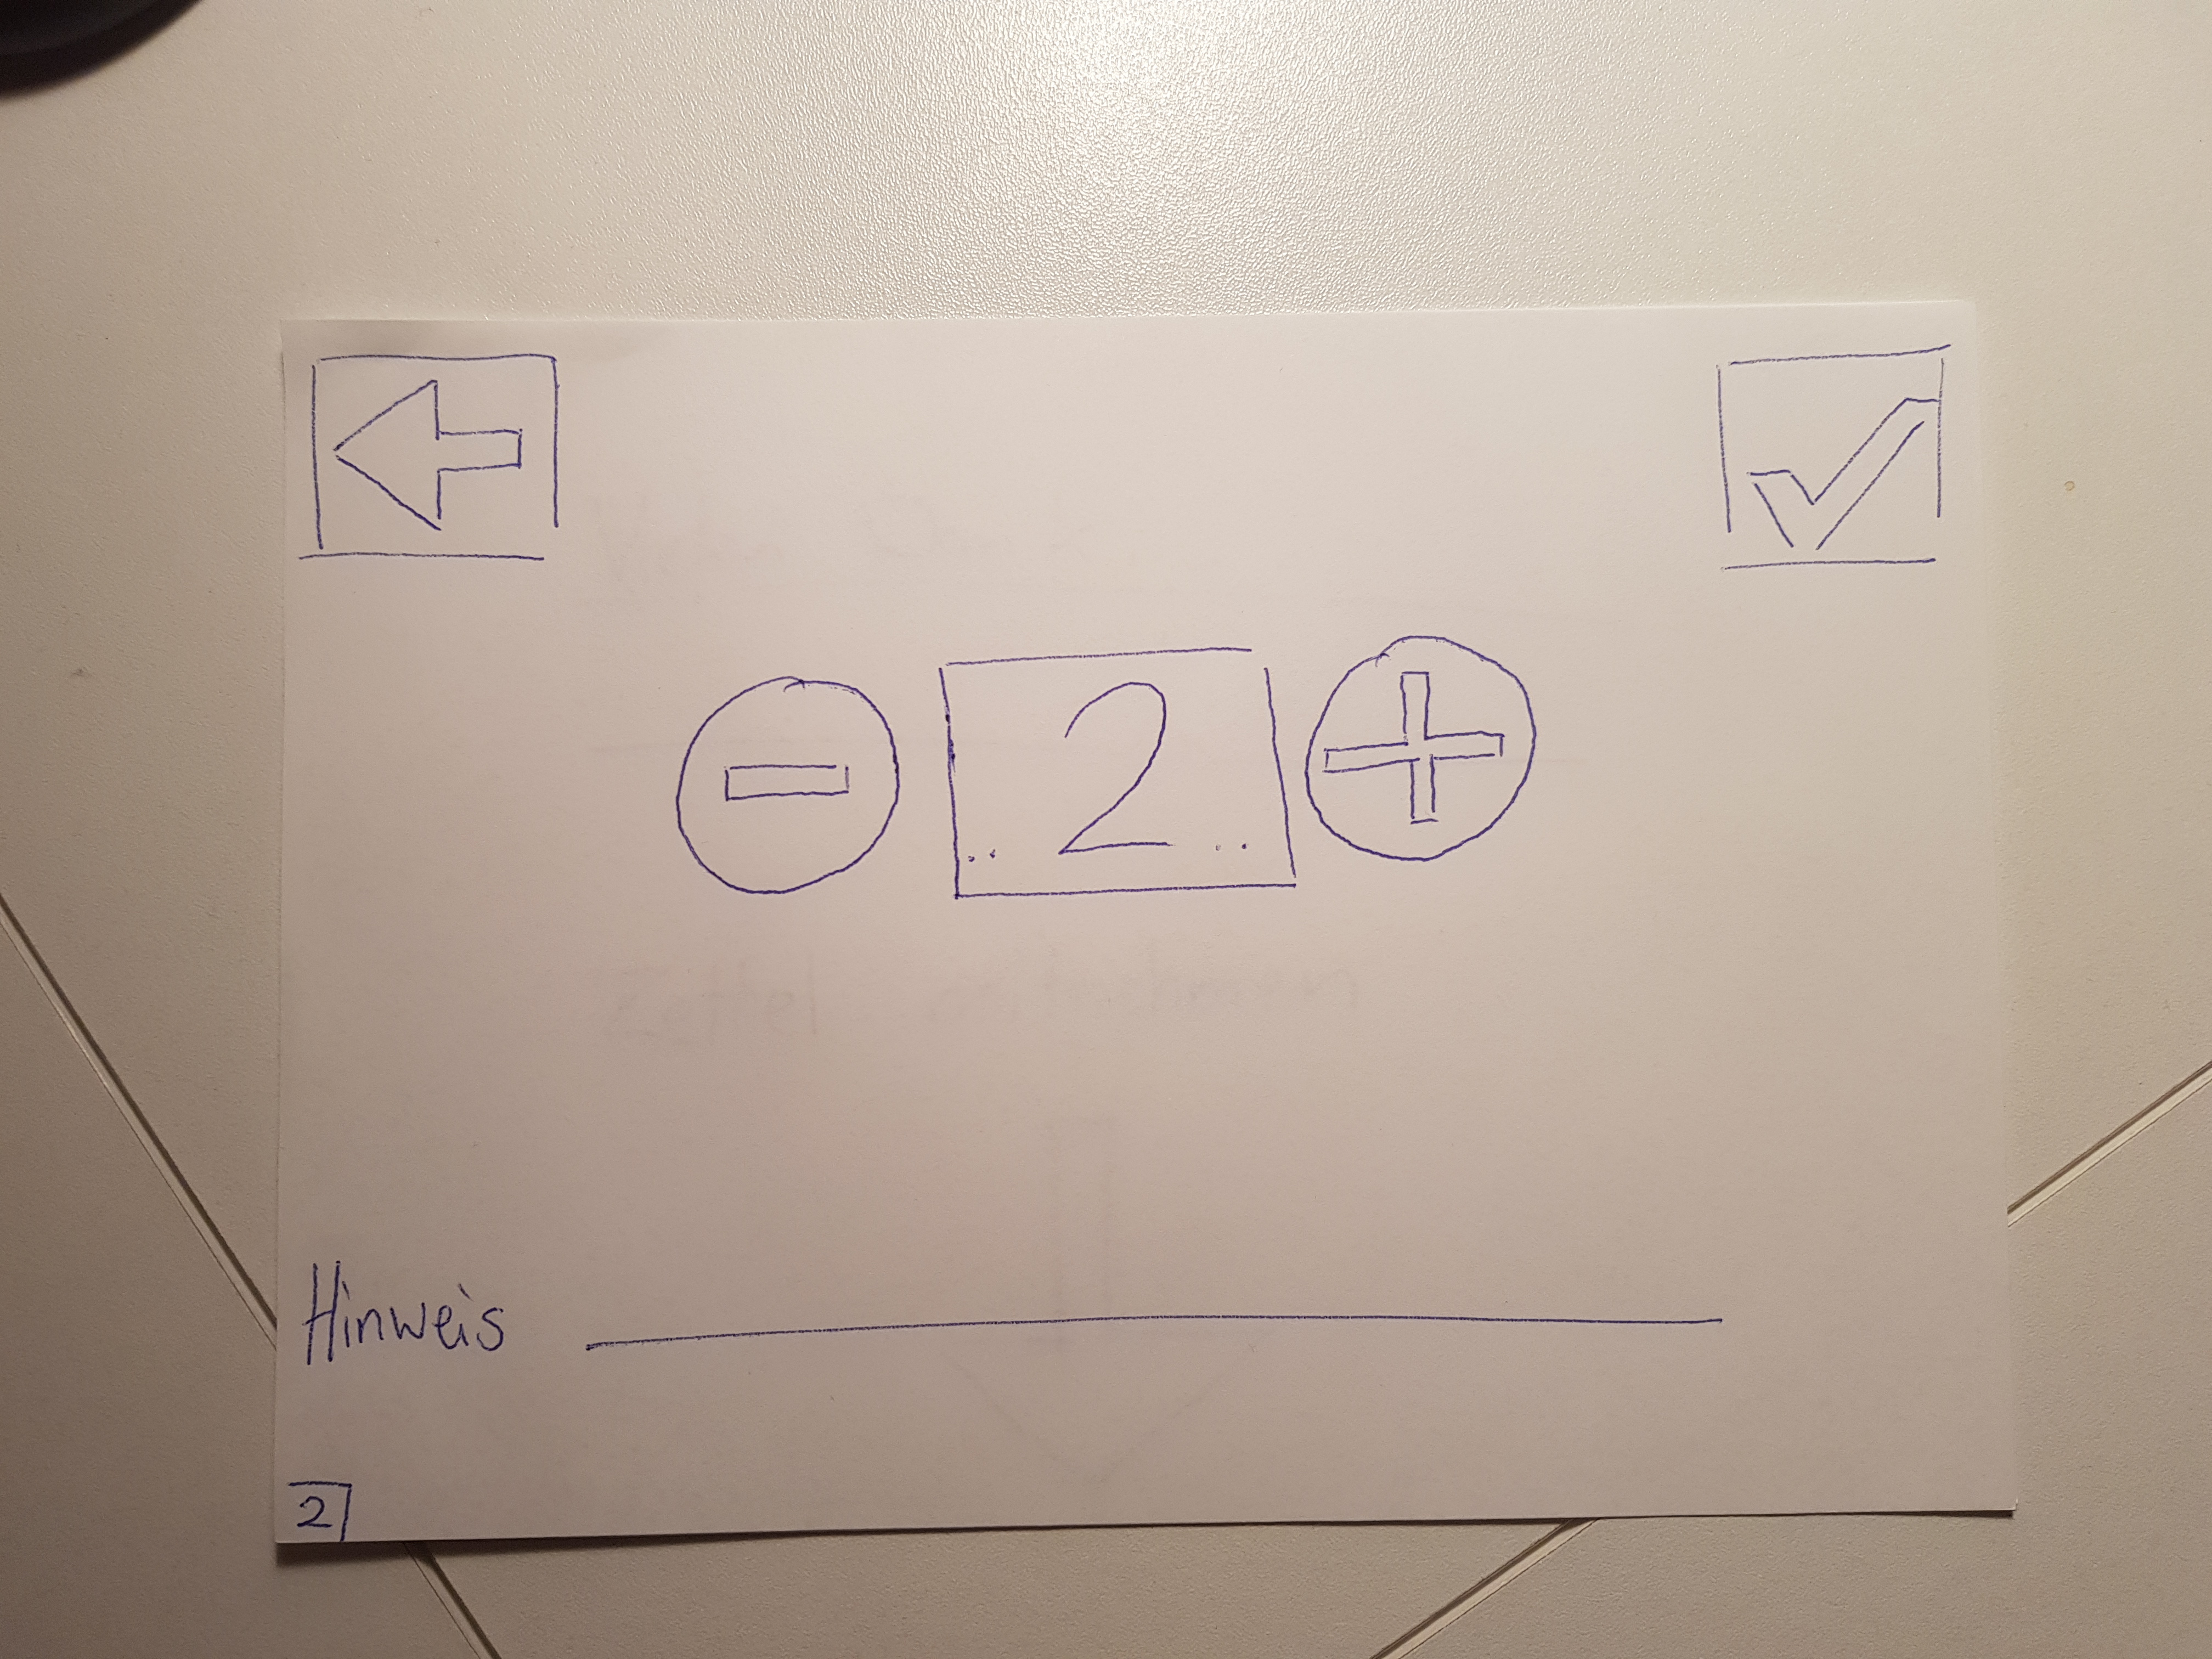 .. 2 ..
Hinweis
2